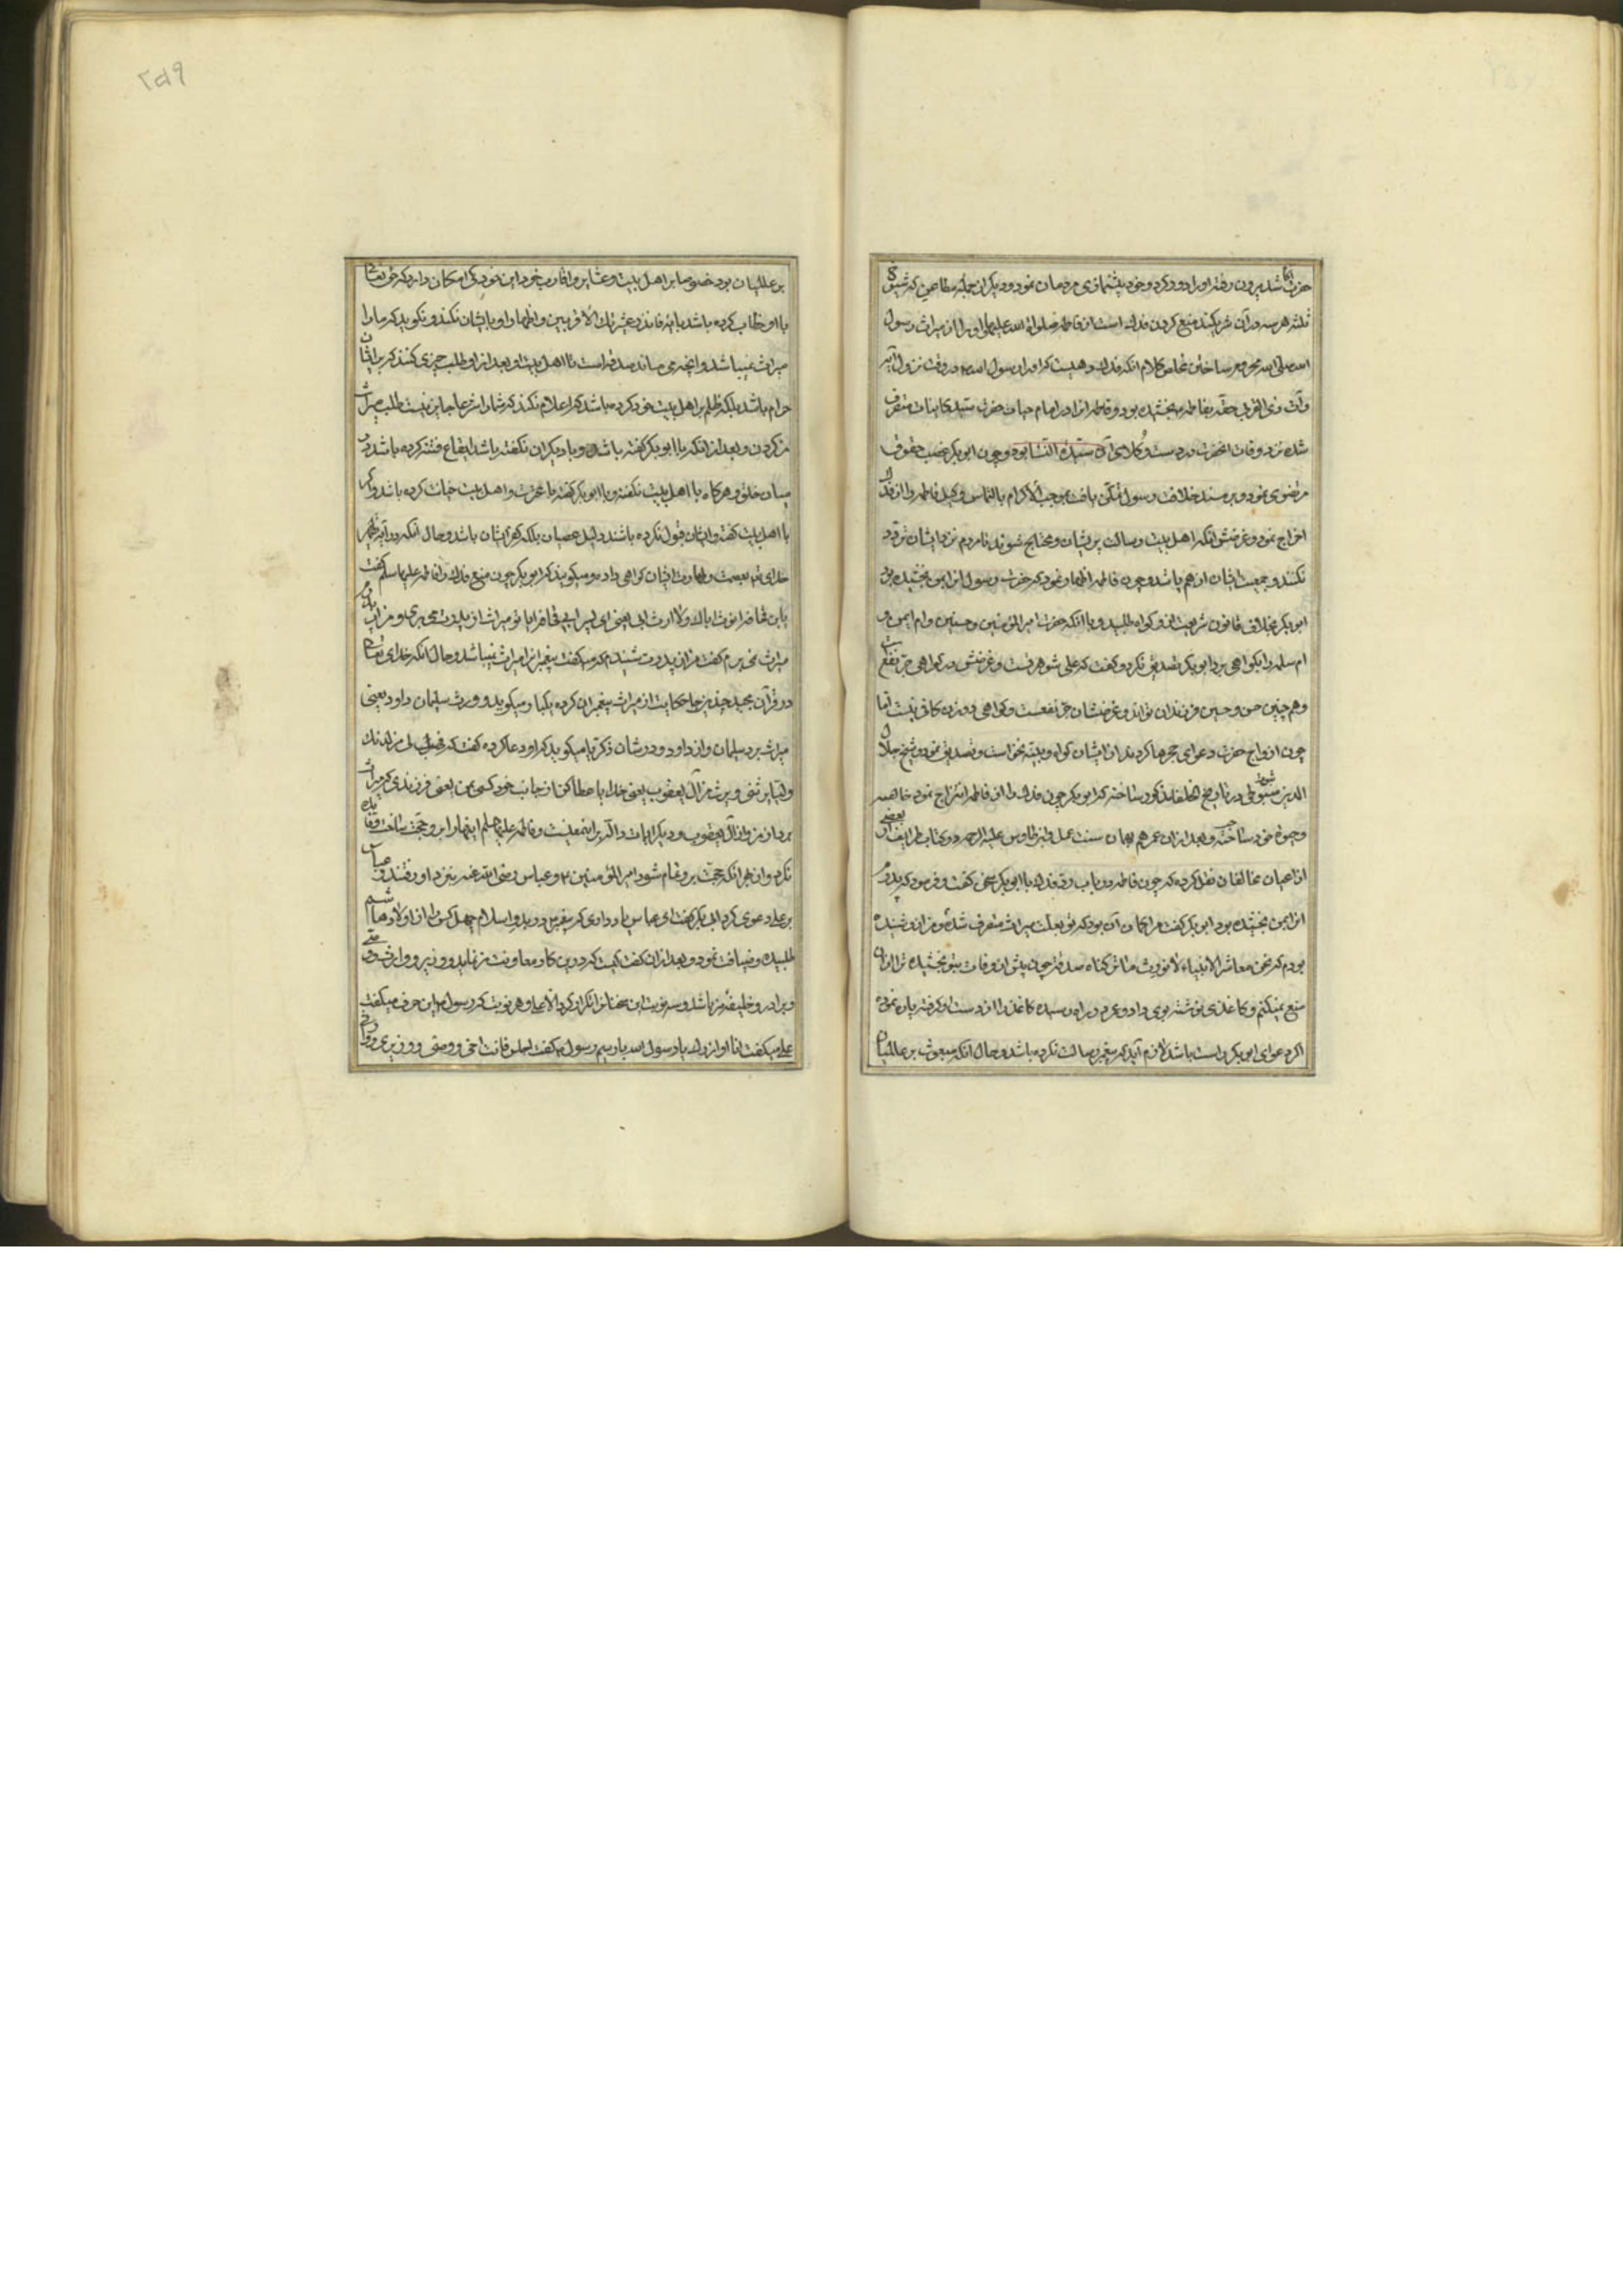 حضرت شد بیرون رفته او را دور کرد و خود پیشنمازی مردمان نمود و دیگر از جمله مطاعن که شیوخ
ثلثه هر سه در آن شریکند منع کردن فدک است از فاطمه صلوات الله علیها و او را از میراث رسول
الله صلی الله محروم ساختن مخلص کلام آنکه فدک دهیست که او را رسول الله در وقت نزول آیه
وآت ذی القربی حقه بفاطمه بخشیده بود و فاطمه آنرا در ایام حیات حضرت سید کاینات متصرف
شده نزد وفات انحضرت در دست وکلای آن سیدة النسا بود و چون ابوبکر غصب حقوق
مرتضوی نمود و بر مسند خلافت رسول تمکن یافت بموجب الاکرام بالتماس وکیل فاطمه را از فدک
اخراج نمود و غرضش آنکه اهل بیت رسالت پریشان و محتاج شوند تا مردم نزد ایشان تردد
نکنند و جمعیت ایشان از هم پاشد و چون فاطمه اظهار نمود که حضرت رسول انرا بمن بخشیده بود
ابوبکر بخلاف قانون شریعت از او گواه طلبید و با آنکه حضرت امیر المؤمنین و حسنین و ام ایمن و
ام سلمه را بگواهی برد ابوبکر تصدیق نکرد و گفت که علی شوهر تست و غرضش در گواهی جر نفع است
و هم چنین حسن و حسین فرزندان تواند و غرضشان جر نفعست و گواهی دو زن کافی نیست اما
چون ازواج حضرت دعوای حجرها کردند از ایشان گواه و بینه نخواست و تصدیق نمود و شیخ جلال
الدین سیوطی در تاریخ الخلفا مذکور ساخته که ابوبکر چون فدک را از فاطمه انتزاع نمود خاصه
و حبوة خود ساخت و بعد از آن عمر هم بهمان سنت عمل و ابن طاوس علیه الرحمه در کتاب طرایف از بعضی
از اعیان مخالفان نقل کرده که چون فاطمه در باب فدک با ابوبکر سخن گفت و فرمود که پدرم
انرا بمن بخشیده بود ابوبکر گفت مرا گمان آن بود که تو بعلت میراث متصرف شده و من از او شنیده
بودم که نحن معاشر الانبیاء لا نورث ما ترکناه صدقة چون پیش از وفات بتو بخشیده ترا از آن
منع نمیکنم و کاغذی نوشته بوی داد و عمر در راه رسیده کاغذ را از دست او گرفته پاره نمود
اگر دعوای ابوبکر راست باشد لازم آید که پیغمبر رسالت نکرده باشد و حال آنکه مبعوث بر عالمیان
بر عالمیان بود خصوصا بر اهل بیت و عشایر و اقارب خود این خود کی امکان دارد که حق تعالی
با او خطاب کرده باشد بآیه فانذر عشیرتک الاقربین و اظهار او بایشان نکند و نگوید که مارا
میراث نمیباشد و آنچه می ماند صدقه است تا اهل بیت او بعد از او طلب چیزی کنند که بر ایشان
حرام باشد بلکه ظلم بر اهل بیت خود کرده باشد که اعلام نکند که شما را شرعا جایز نیست طلب میراث
من کردن و بعد از آنکه با ابوبکر گفته باشد و با دیگران نگفته باشد ایقاع فتنه کرده باشد در
میان خلق و هرگاه با اهل بیت نگفته و با ابوبکر گفته با عترت و اهل بیت خیانت کرده باشد و اگر
با اهل بیت گفته و ایشان قبول نکرده باشند دلیل عصیان بلکه کفر ایشان باشد و حال آنکه در آیه تطهیر
خدای تعالی بعصمت و طهارت ایشان گواهی داده و میگویند که ابوبکر چون منع فدک از فاطمه علیها سلم گفت
یابن قحافه اترث اباک ولا ارث ابی یعنی ای پسر ابی قحافه ایا تو میراث از پدرت می بری و من از پدرم
میراث نمی برم گفت من از پدرت شنیدم که میگفت پیغمبر انرا میراث نمیباشد و حال آنکه خدای تعالی
در قرآن مجید چندین جا حکایت از میراث پیغمبران کرده یکجا میگوید و ورث سلیمان داود یعنی
میراث برد سلیمان از داود و در شان ذکریا میگوید که او دعا کرده گفت که فهب لی من لدنک
ولیا یرثنی و یرث من آل یعقوب یعنی خدایا عطا کن از جانب خود کسی بمن یعنی فرزندی که میراث
برد از من و از آل یعقوب و دیگر ایات دال بر اینمعنیست و فاطمه علیها سلم اینها را برو حجت ساخت فایده
نکرد و از بهر آنکه حجت برو تمام شود امیر المؤمنین و عباس رضی الله عنه بنزد او رفتند و عباس
بر علی دعوی کرد ابی بکر گفت ای عباس یاد داری که پیغمبر در بدو اسلام چهل کس را از اولاد هاشم
طلبیده و ضیافت نمود و بعد از آن گفت کیست که در دین کار و معاونت من نماید و وزیر و وارث و وصی
و برادر و خلیفهٔ من باشد و سه نوبت این سخنانرا تکرار کرد الا علی و هر نوبت که رسول این حرف میگفت
علی میگفت انا اوازرک یا رسول الله یا رسیم رسول گفت اجلس فانت اخی و وصیی و وزیری و وارثی
۲۵۹